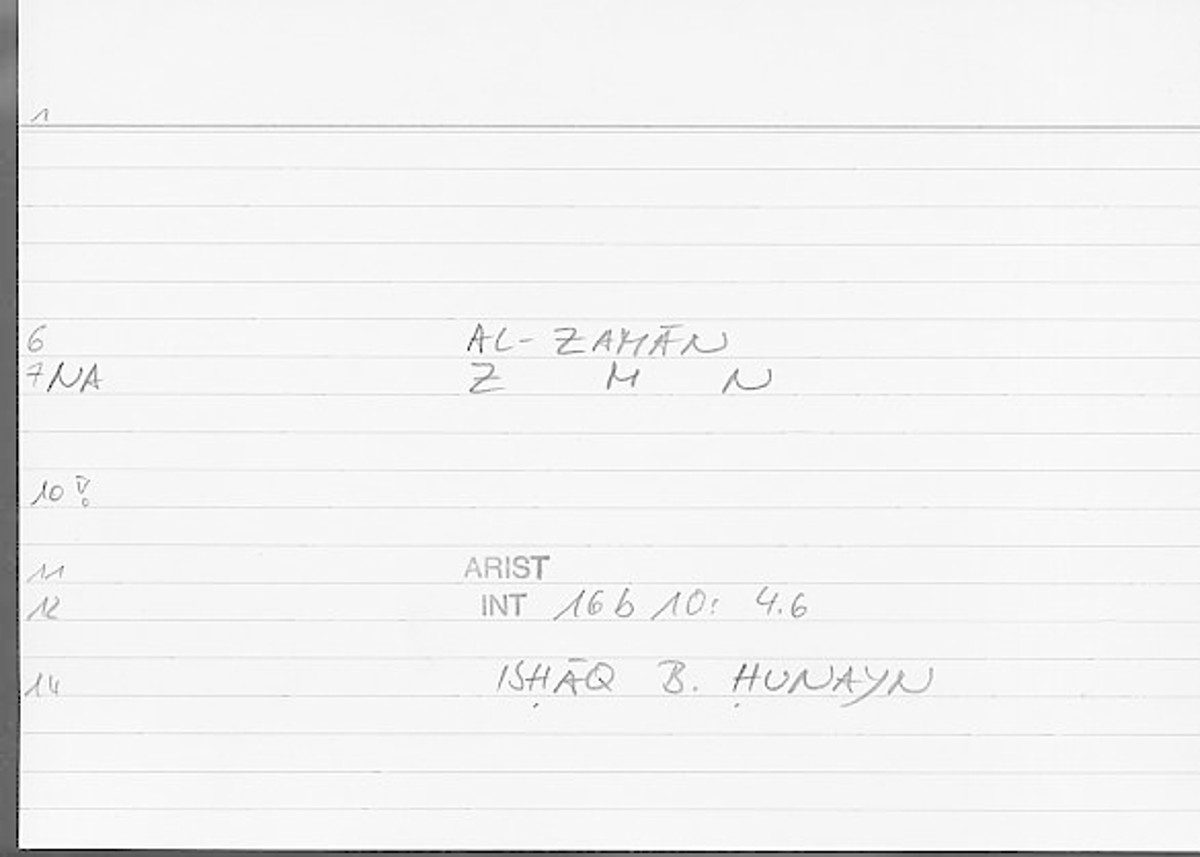 1
6 AL-ZAMĀN
7NA Z M N
10
11 ARIST
12 INT 16 b 10: 4.6
14 ISḤĀQ B. ḤUNAYN